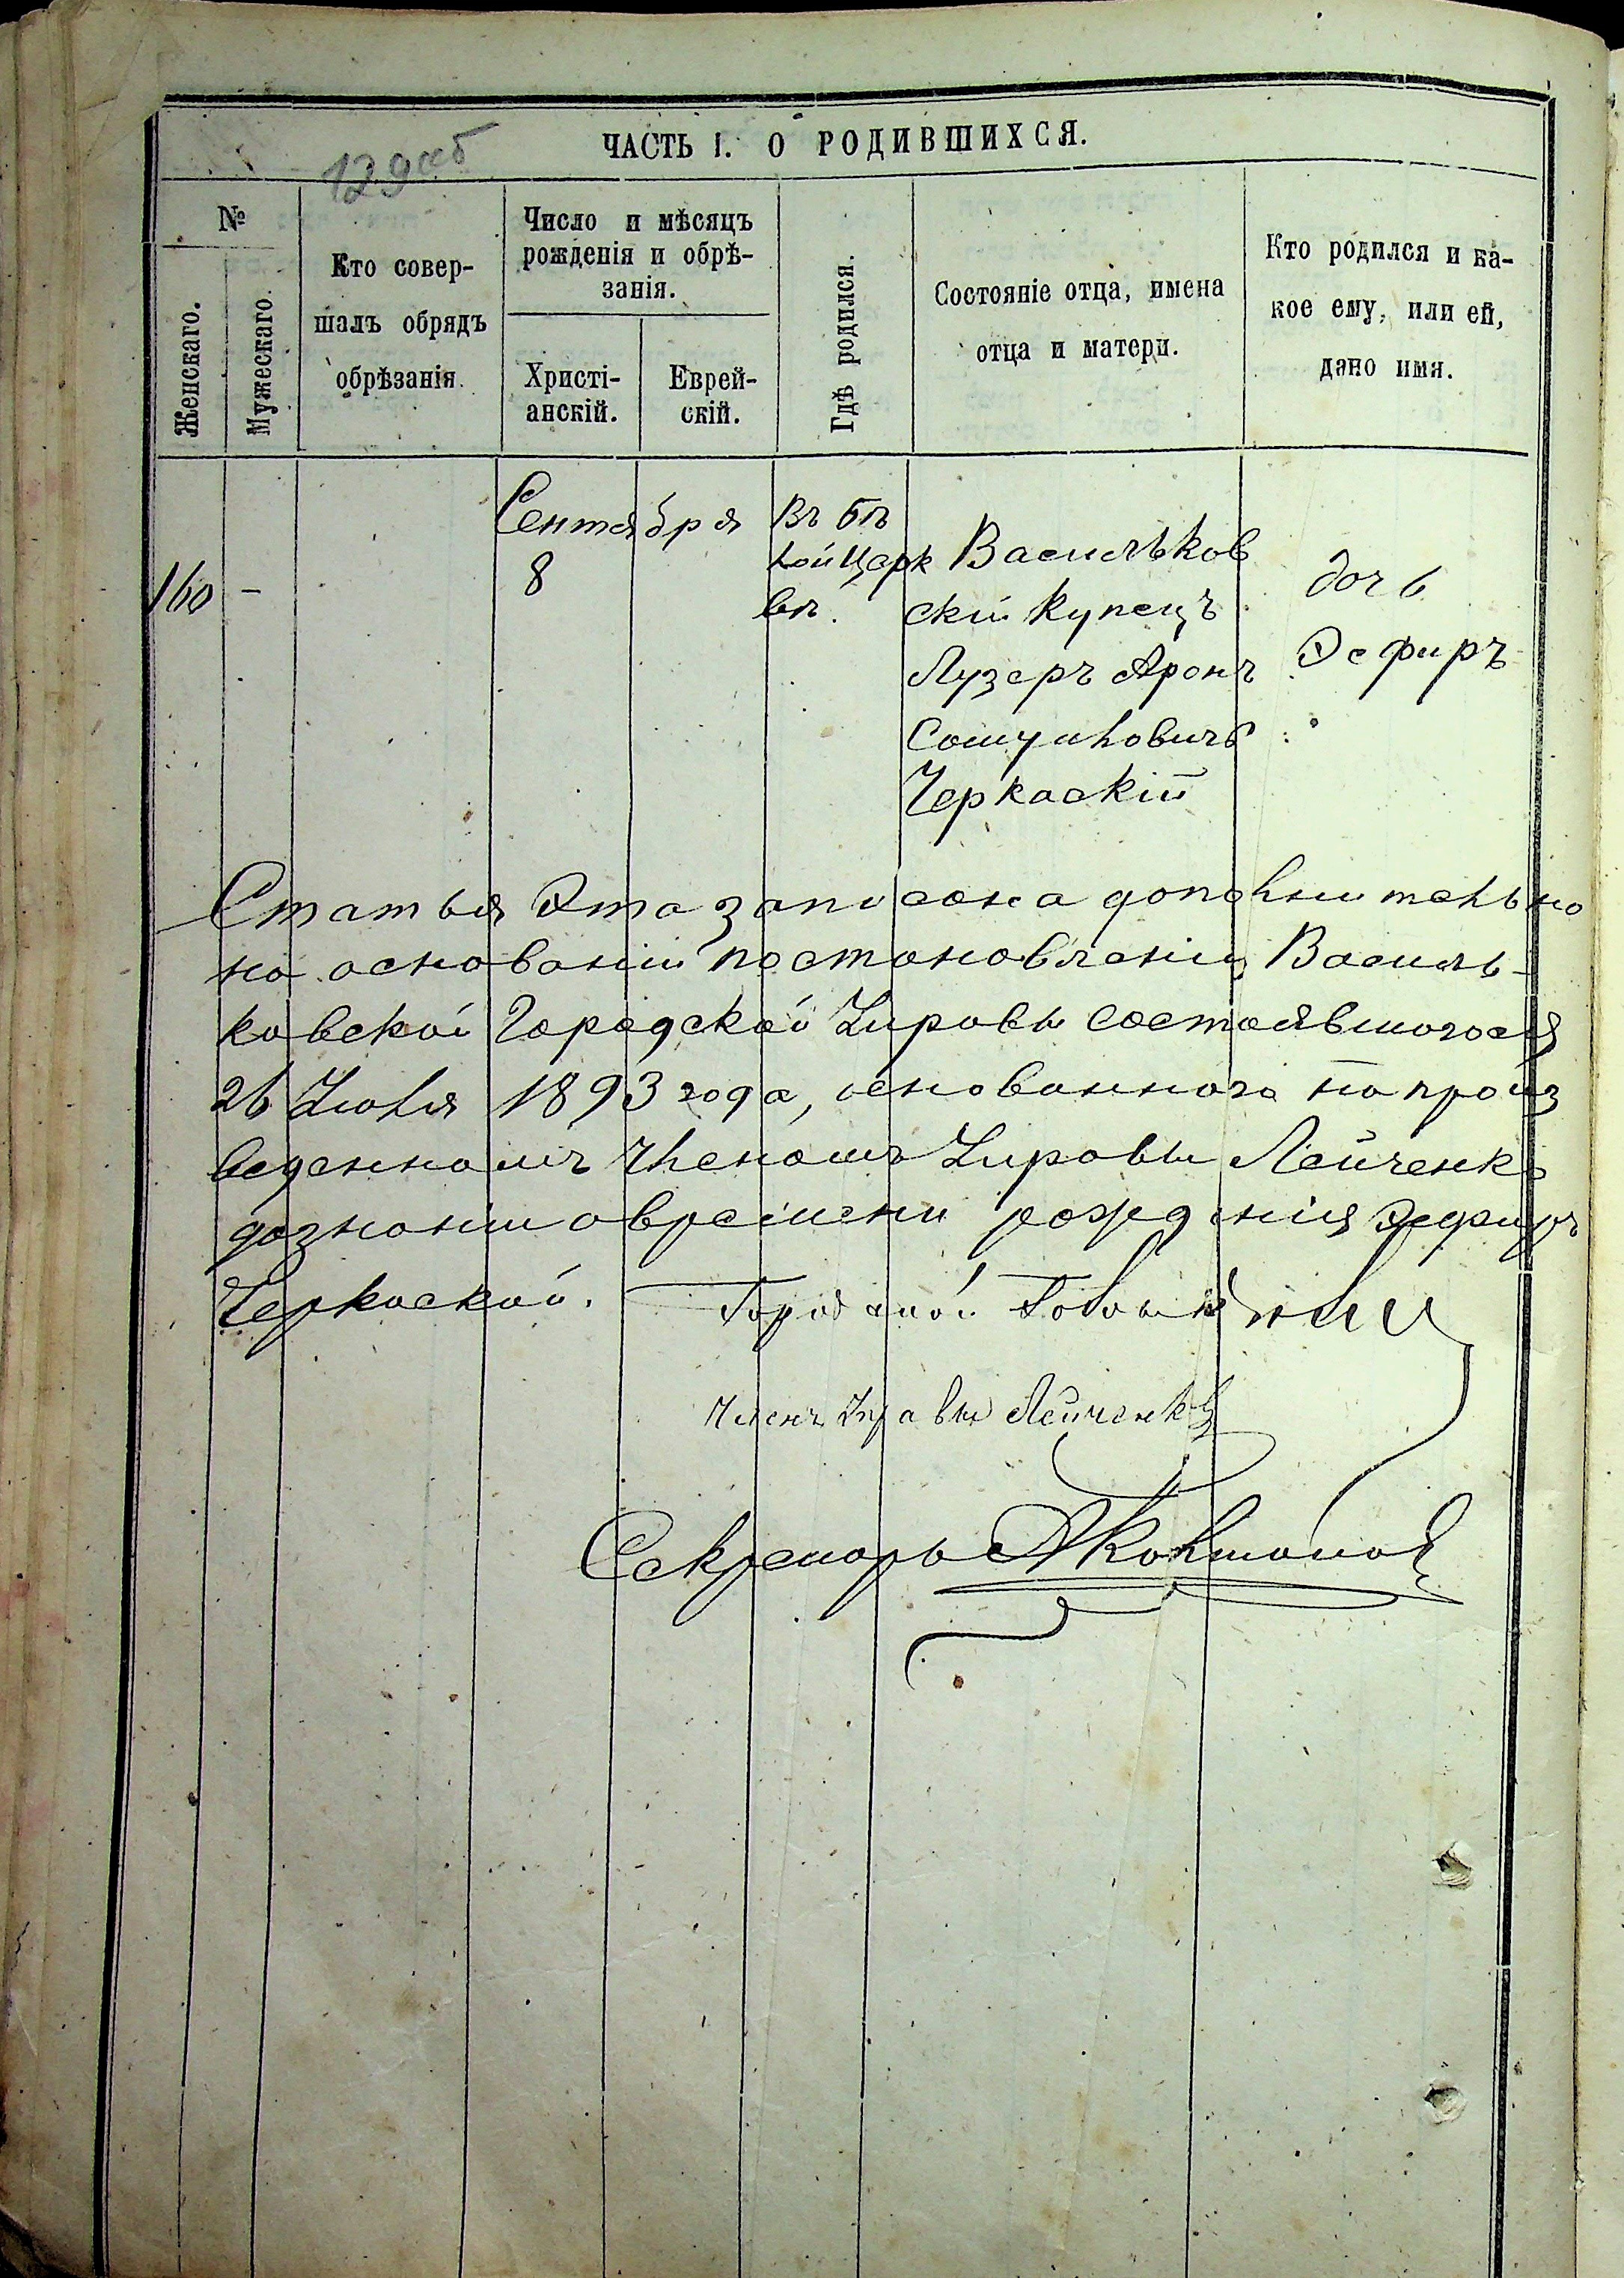 129 об
ЧАСТЬ I. О РОДИВШИХСЯ.
№
Женскаго.
Мужескаго.
Кто совер-
шалъ обрядъ
обрѣзанія.
Число и мѣсяцъ
рожденія и обрѣ-
занія.
Христі-
анскій.
Еврей-
скій.
Гдѣ родился.
Состояніе отца, имена
отца и матери.
Кто родился и ка-
кое ему, или ей,
дано имя.
160
-
Сентября
8
Въ Бѣ
лой Церк
вѣ.
Васильков
скій Купецъ
Лузеръ Аронъ
Сошулковичъ
Черкаскій
дочь
Эсфиръ
Статья Эта записана дополнительно
на основаніи постановленія Василь-
ковской Городской Управы состоявшогося
26 Іюля 1893 года, основанного на произ
веденномъ Членомъ Управы Лейченко
дознаніи о времени рожденія Эсфиръ
Черкаской.
Городской Голова
Членъ Управы Лейченко
Секретарь